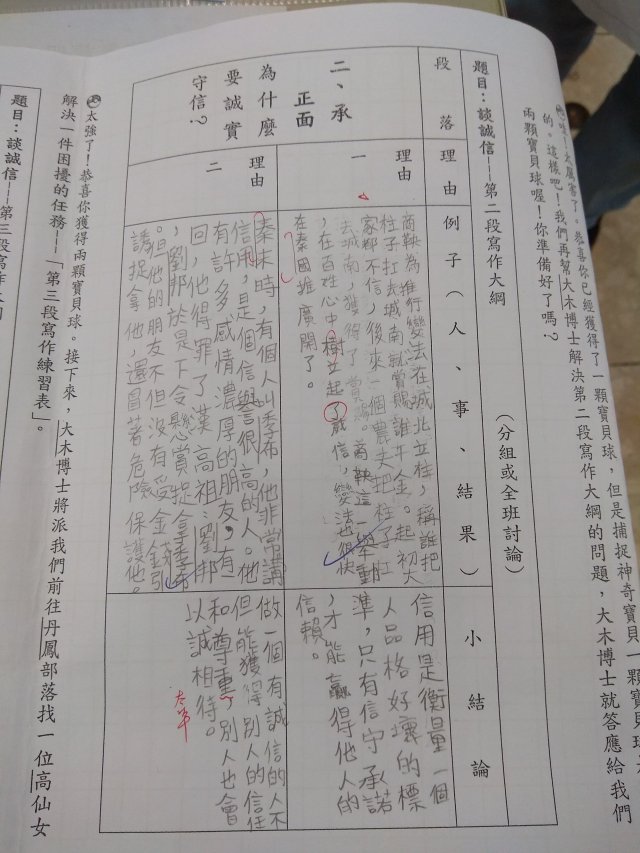 哇！太厲害了。恭喜你已經獲得了一顆寶貝球，但是捕捉神奇寶貝一顆寶貝球是
的。這樣吧！我們再幫大木博士解決第二段寫作大綱的問題，大木博士就答應給我們
兩顆寶貝球喔！你準備好了嗎？
題目：談誠信——第二段寫作大綱
（分組或全班討論）
段落
理由
例子（人、事、結果）
小結論
二、承
正面
為什麼
要誠實
守信？
理由
一
商鞅為推行變法在城北立柱，稱誰把
柱子扛去城南就賞賜誰千金。起初大
家都不信，後來一個農夫把柱子扛
去城南，獲得了賞賜。商鞅這一舉動
，在百姓心中樹立起了威信，變法也很快
在秦國推廣開了。
信用是衡量一個
人品格好壞的標
準，只有信守承諾
，才能贏得他人的
信賴。
理由
二
秦末時，有個人叫季布，他非常講
信用，是個信譽很高的人。他
有許多感情濃厚的朋友，有一
回，他得罪了漢高祖：劉邦
，劉邦於是下令懸賞捉拿季布
。但他的朋友不但沒有受金錢引
誘捉拿他，還冒著危險保護他。
做一個有誠信的人不
但能獲得別人的信任
和尊重，別人也會
以誠相待。
太棒
太強了！恭喜你獲得兩顆寶貝球。接下來，大木博士將派我們前往丹鳳部落找一位高仙女
解決一件困擾的任務——「第三段寫作練習表」。
題目：談誠信——第三段寫作大綱